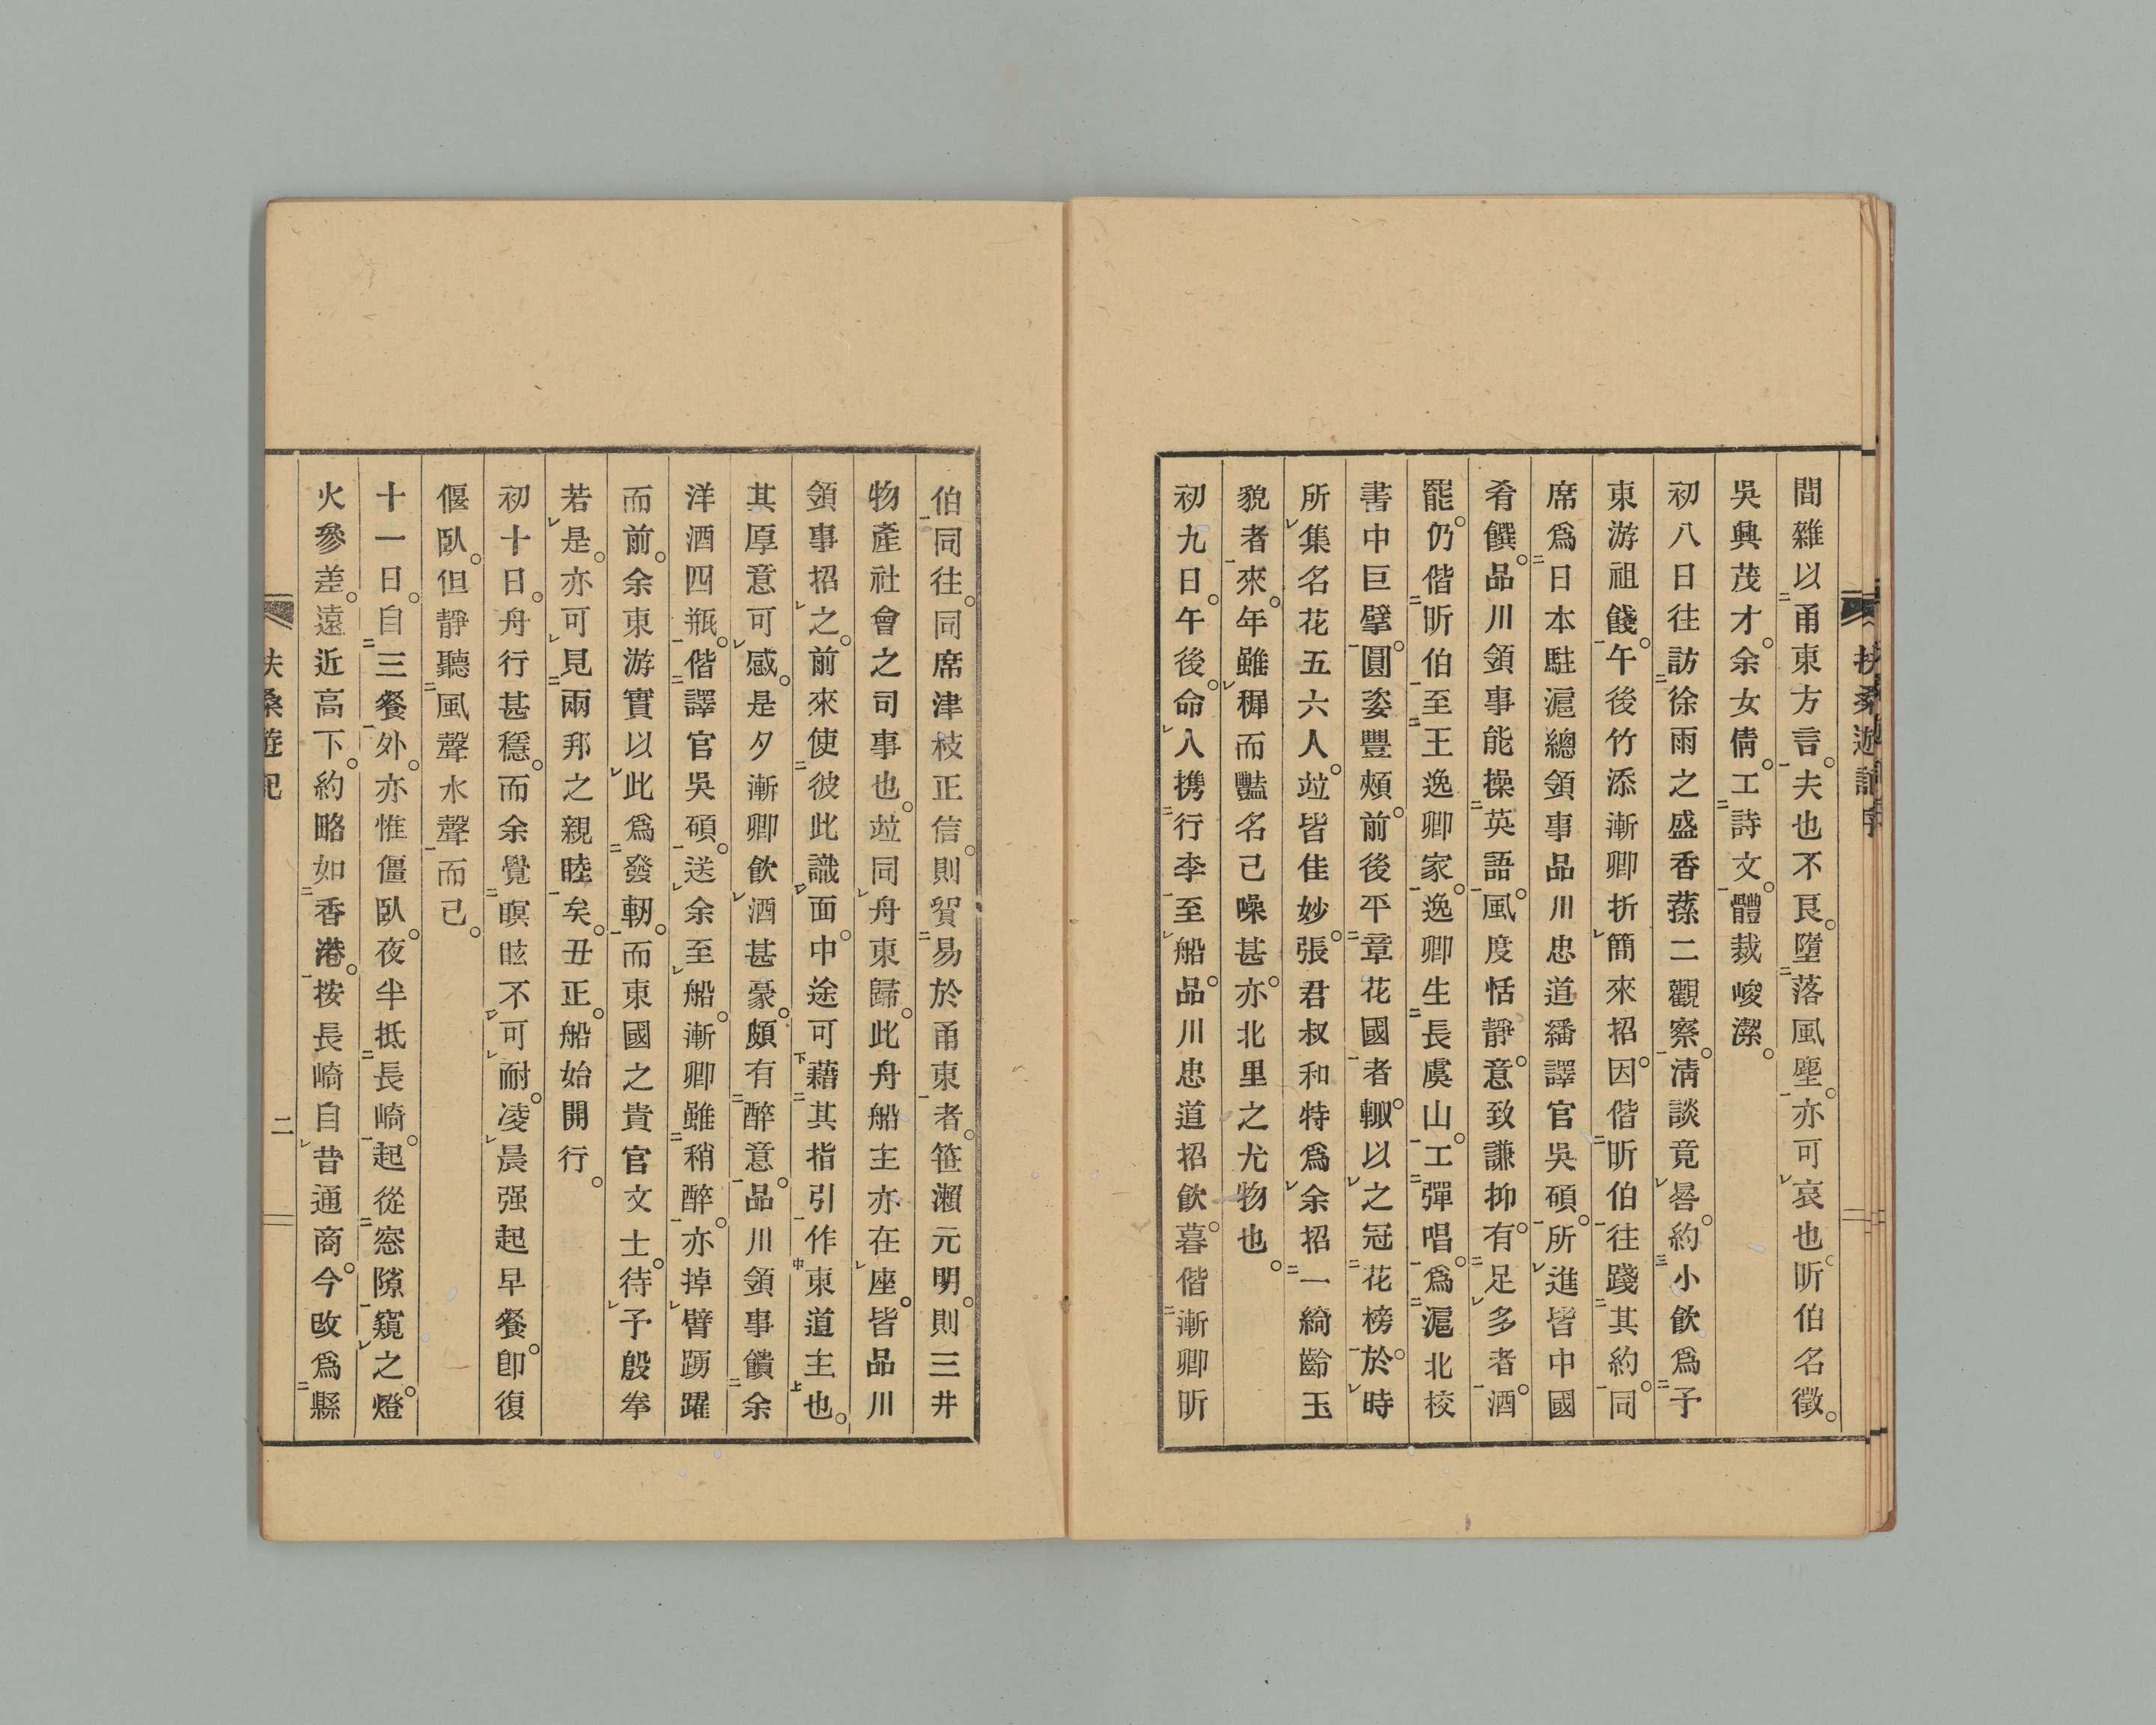 扶桑遊記序
間雜以甬東方言。夫也不艮。墮落風塵。亦可哀也。昕伯名徵。
吳興茂才。余女倩。工詩文。體裁峻潔。
初八日往訪徐雨之盛香蓀二觀察。淸談竟晷。約小飮爲予
東游祖餞。午後竹添漸卿折簡來招。因偕昕伯往踐其約。同
席爲日本駐滬總領事品川忠道繙譯官吳碩。所進皆中國
肴饌。品川領事能操英語。風度恬靜。意致謙抑。有足多者。酒
罷。仍偕昕伯至王逸卿家。逸卿生長虞山。工彈唱。爲滬北校
書中巨擘。圓姿豐頰。前後平章花國者。輙以之冠花榜。於時
所集名花五六人。竝皆佳妙。張君叔和特爲余招一綺齡玉
貌者來。年雖穉而豔名已噪甚。亦北里之尤物也。
初九日。午後。命人携行李至船。品川忠道招飮。暮偕漸卿昕
伯同往。同席津枝正信。則貿易於甬東者。笹瀨元明。則三井
物產社會之司事也。竝同舟東歸。此舟船主亦在座。皆品川
領事招之。前來使彼此識面。中途可藉其指引作東道主也。
其厚意可感。是夕漸卿飮酒甚豪。頗有醉意。品川領事饋余
洋酒四瓶。偕譯官吳碩。送余至船。漸卿雖稍醉。亦掉臂踴躍
而前。余東游實以此爲發軔。而東國之貴官文士。待予殷拳
若是。亦可見兩邦之親睦矣。丑正。船始開行。
初十日。舟行甚穩。而余覺瞑眩不可耐。凌晨强起早餐。卽復
偃臥。但靜聽風聲水聲而已。
十一日。自三餐外。亦惟僵臥。夜半抵長崎。起從窓隙窺之。燈
火參差。遠近高下。約略如香港。按長崎自昔通商。今改爲縣
扶桑遊記
二